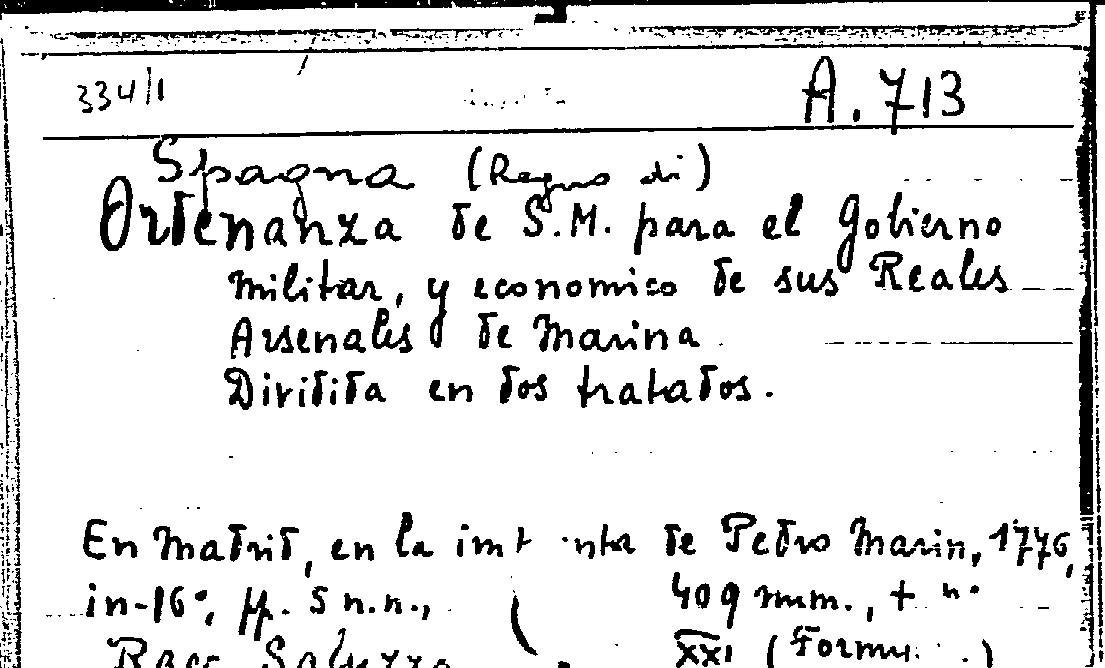 334/1 A. 713
Spagna (Regno di)
Ordenanza de S.M. para el Gobierno
militar, y economico de sus Reales
Arsenales de Marina
Dividida en dos tratados.
En Madrid, en la de Pedro Marin, 1776,
in-16°, pp. 5 n.n., 409 num., + n.
Racc. Saluzzo XXI (Formu. )